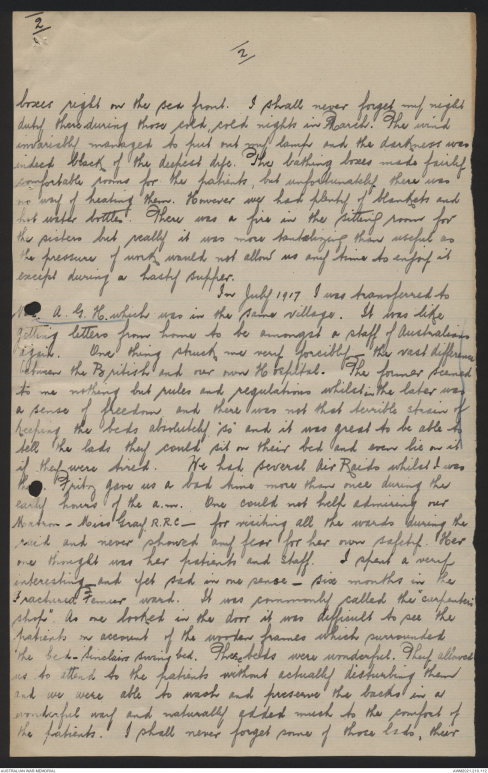 2
2
boxes right on the sea front. I shall never forget my night
duty there during those cold, cold nights in March. The wind
invariably managed to put out my lamp and the darkness was
indeed black of the deepest dye. The bathing boxes made fairly
comfortable rooms for the patients, but unfortunately there was
no way of heating them. However we had plenty of blankets and
hot water bottles. There was a fire in the sitting room for
the sisters but really it was more tantalizing than useful as
the pressure of work would not allow us any time to enjoy it
except during a hasty supper.
In July 1917 I was transferred to
A. G. H. which was in the same village. It was like
getting letters from home to be amongst a staff of Australians
again. One thing struck me very forcibly – the vast difference
between the British and our own Hospital. The former seemed
to me nothing but rules and regulations whilst in the later was
a sense of freedom and there was not that terrible strain of
keeping the beds absolutely 'so' and it was great to be able to
tell the lads they could sit on their bed and even lie on it
if they were tired. We had several Air Raids whilst I was
Fritz gave us a bad time more than once during the
early hours of the a.m. One could not help admiring our
Matron – Miss Gray R.R.C – for visiting all the wards during the
raid and never showed any fear for her own safety. Her
one thought was her patients and staff. I spent a very
interesting and yet sad in one sence – six months in the
Fractured Femur ward. It was commonly called the "carpenters
shop". As one looked in the door it was difficult to see the
patients on account of the wooden frames which surrounded
the bed – Sinclairs swing bed. These beds were wonderful. They allowed
us to attend to the patients without actually disturbing them
and we were able to wash and preserve the backs in a
wonderful way and naturally added much to the comfort of
the patients. I shall never forget some of those lads, their
AUSTRALIAN WAR MEMORIAL